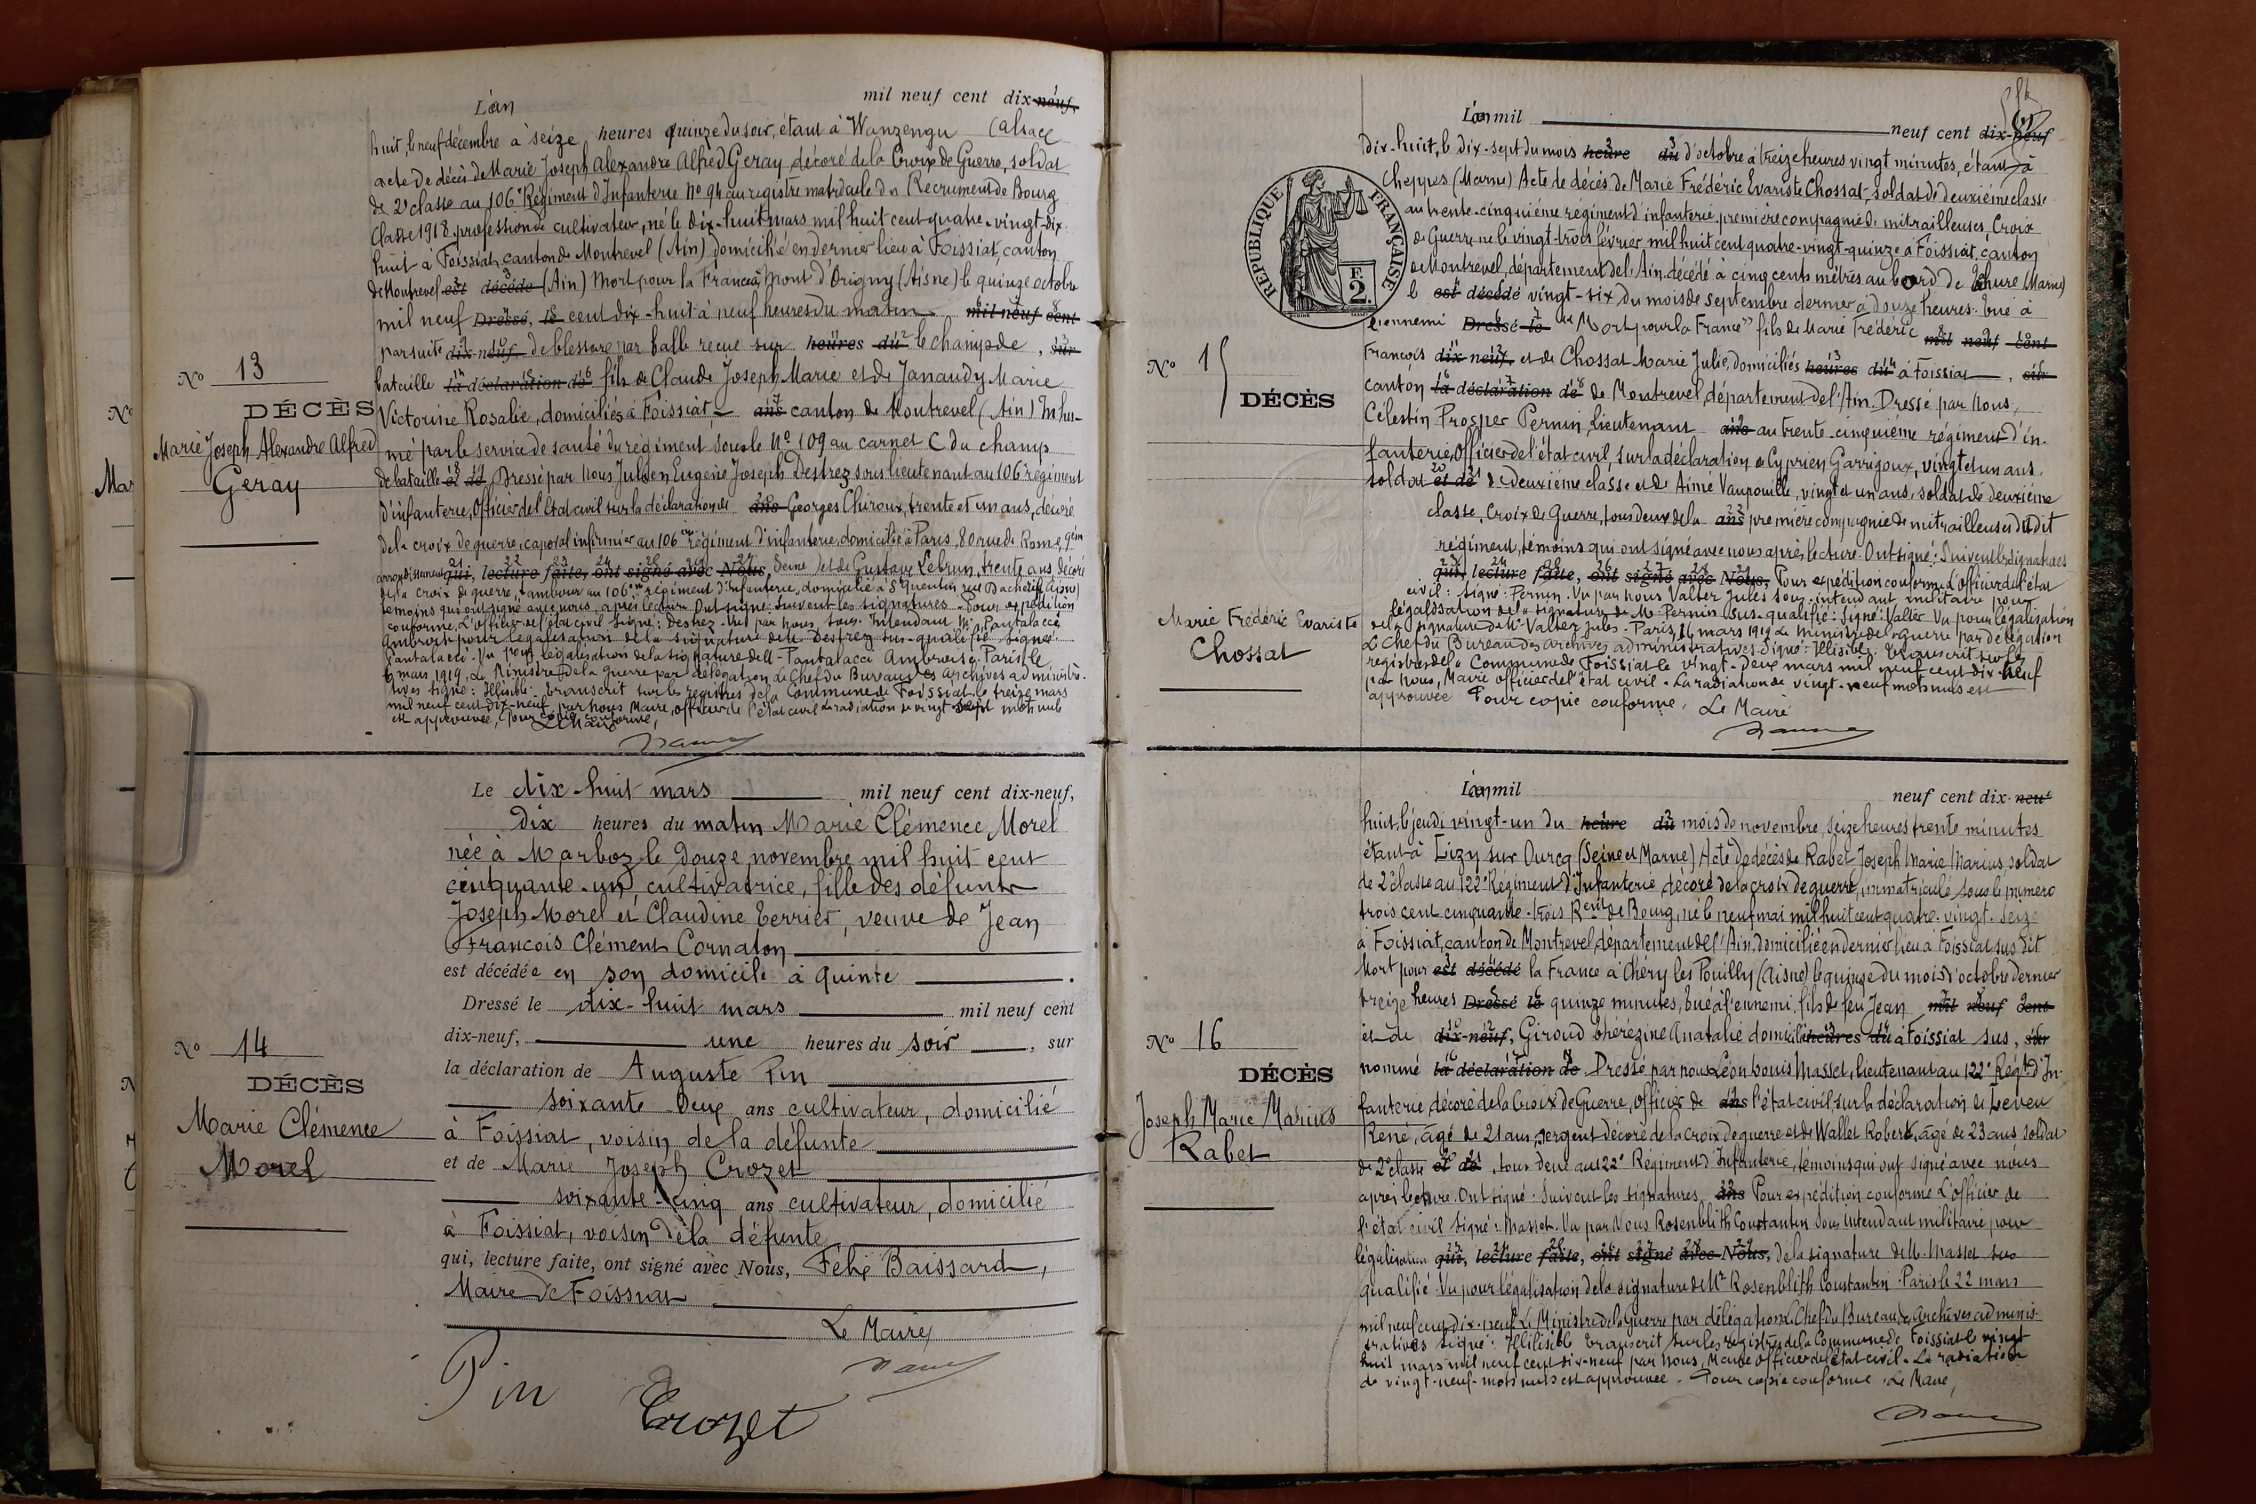 L'an mil neuf cent dix-neuf,
huit, le neuf décembre à seize heures quinze du soir, étant à Wanzengu (alsace
acte de décès de Marie Joseph Alexandre Alfred Geray, décoré de la Croix de Guerre, soldat
de 2e classe au 106e Régiment d'Infanterie No 94 au registre matricule du Recrument de Bourg
Classe 1918 profession de cultivateur, né le dix-huit mars mil huit cent quatre-vingt-dix-
huit à Foissiat, canton de Montrevel (Ain) domicilié en dernier lieu à Foissiat, canton
de Montrevel est décédé (Ain) Mort pour la France à Mont d'Origny (Aisne) le quinze octobre
mil neuf Dressé, le cent dix-huit à neuf heures du matin mil neuf cent
par suite dix-neuf, de blessure par balle reçue sur heures du le champ de , sur
bataille la déclaration de fils de Claude Joseph Marie et de Janaudy Marie
No 13
DÉCÈS
Marie Joseph Alexandre Alfred
Geray
Victorine Rosalie, domiciliés à Foissiat, ans canton de Montrevel (Ain) Inhu-
mé par le service de santé du régiment sous le No 109 au carnet C du champ
de bataille et de Dressé par Nous Julien Eugène Joseph Destrez sous lieutenant au 106e régiment
d'infanterie, Officier de l'Etat civil sur la déclaration de ans Georges Chiroux, trente et un ans, décoré
de la croix de guerre, caporal infirmier au 106eme régiment d'infanterie, domicilié à Paris 80 rue de Rome, 9em
arrondissement qui, lecture faite, ont signé avec Nous, Seine et de Gustave Lebrun, trente ans décoré
de la croix de guerre, tambour au 106em régiment d'infanterie, domicilié à St Quentin (Aisne)
témoins qui ont signé avec nous, après lecture. Ont signé: Suivent les signatures. Pour expédition
conforme, L'officier de l'état civil signé: Destrez. Vu par nous, Sous-Intendant Mre Pantalacci
Ambroise pour légalisation de la signature de M. Destrez sus-qualifié signé:
Pantalacci. Vu pour légalisation de la signature de M. Pantalacci Ambroise. Paris le
6 mars 1919, Le Ministre de la Guerre par délégation Le Chef du Bureau des Archives administra-
tives signé: Illisible. Transcrit sur les registres de la Commune de Foissiat le treize mars
mil neuf cent dix-neuf par nous Maire, officier de l'état civil La radiation de vingt-sept mots nuls
est approuvée, Pour copie conforme,
Le Maire
Le dix-huit mars mil neuf cent dix-neuf,
Dix heures du matin Marie Clémence Morel
née à Marboz le douze novembre mil huit cent
cinquante-un, cultivatrice, fille des défunts
Joseph Morel et Claudine Terrier, veuve de Jean
François Clément Cornaton
est décédée en son domicile à quinte .
Dressé le dix-huit mars mil neuf cent
dix-neuf, une heures du soir , sur
la déclaration de Auguste Pin
soixante-deux ans cultivateur, domicilié
No 14
DÉCÈS
Marie Clémence
Morel
à Foissiat, voisin de la défunte
et de Marie Joseph Crozet
soixante-cinq ans cultivateur, domicilié
à Foissiat, voisin de la défunte
qui, lecture faite, ont signé avec Nous, Félix Baissard,
Maire de Foissiat
Le Maire,
Pin
Crozet
L'an mil neuf cent dix-neuf
dix-huit, le dix-sept du mois heure du d'octobre à treize heures vingt minutes, étant à
Cheppes (Marne) Acte de décès de Marie Frédéric Evariste Chossat, soldat de deuxième classe
au trente-cinquième régiment d'infanterie, première compagnie de mitrailleuses, Croix
de Guerre né le vingt-trois février mil huit cent quatre-vingt-quinze à Foissiat, canton
de Montrevel, département de l'Ain, décédé à cinq cents mètres au bord de Tahure (Marne)
le est décédé vingt-six du mois de septembre dernier à douze heures. Tué à
l'ennemi Dressé le "Mort pour la France" fils de Marie Frédéric mil neuf cent
François dix neuf, et de Chossat Marie Julie, domiciliés heures du à Foissiat , sur
canton la déclaration de de Montrevel, département de l'Ain. Dressé par Nous,
RÉPUBLIQUE FRANÇAISE
F.
2.
No 15
DÉCÈS
Marie Frédéric Evariste
Chossat
Célestin Prosper Pernin, lieutenant ans au trente-cinquième régiment d'in-
fanterie, Officier de l'état civil, sur la déclaration de Cyprien Garrigoux, vingt et un ans,
soldat et de de deuxième classe et de Aimé Vaupouille, vingt et un ans, soldat de deuxième
classe, Croix de Guerre, tous deux de la ans première compagnie de mitrailleuses du dit
régiment, témoins qui ont signé avec nous après lecture. Ont signé: Suivent les signatures
qui, lecture faite, ont signé avec Nous, Pour expédition conforme L'officier de l'état
civil: Signé: Pernin. Vu par nous Valter Jules sous-intendant militaire pour
légalisation de la signature de Mr Pernin sus-qualifié: Signé: Valter Vu pour légalisation
de la signature de Mr Valter Jules. Paris, 14 mars 1919 Le Ministre de la Guerre par délégation
Le Chef du Bureau des Archives administratives Signé: Illisible. Transcrit sur les
registres de la Commune de Foissiat le vingt-deux mars mil neuf cent dix-neuf
par nous, Maire officier de l'état civil. La radiation de vingt-neuf mots nuls est
approuvée Pour copie conforme, Le Maire
L'an mil neuf cent dix-neuf
huit, le jeudi vingt-un du heure du mois de novembre, seize heures trente minutes
étant à Lizy sur Ourcq (Seine et Marne) Acte de décès de Rabet Joseph Marie Marius, soldat
de 2e classe au 122e Régiment d'Infanterie, décoré de la croix de guerre, immatriculé sous le numéro
trois cent cinquante-trois Rent de Bourg, né le neuf mai mil huit cent quatre-vingt-seize
à Foissiat, canton de Montrevel, département de l'Ain, domicilié en dernier lieu à Foissiat sus dit
Mort pour est décédé la France à Chéry les Pouilly (Aisne) le quinze du mois d'octobre dernier
treize heures Dressé le quinze minutes, tué à l'ennemi, fils de feu Jean mil neuf cent
et de dix-neuf, Giroud Thérezine Anatalie domiciliée heures du à Foissiat sus, sur
nommé la déclaration de Dressé par nous Léon Louis Masset, lieutenant au 122e Régt d'In-
No 16
DÉCÈS
Joseph Marie Marius
Rabet
fanterie, décoré de la Croix de Guerre, Officier de ans l'état civil, sur la déclaration de Leveu
René, âgé de 21 ans, sergent décoré de la croix de guerre et de Wallet Robert, âgé de 23 ans soldat
de 2e classe et de , tous deux au 122e Régiment d'Infanterie, témoins qui ont signé avec nous
après lecture. Ont signé: Suivent les signatures ans Pour expédition conforme L'officier de
l'état civil signé: Masset. Vu par Nous Rosenblith Constantin Sous Intendant militaire pour
légalisation qui, lecture faite, ont signé avec Nous, de la signature de M. Masset sus
qualifié. Vu pour légalisation de la signature de Mr Rosenblith Constantin. Paris le 22 mars
mil neuf cent dix-neuf Le Ministre de la Guerre par délégation Le Chef du Bureau des Archives adminis-
tratives signé: Illisible Transcrit sur les registres de la Commune de Foissiat le vingt
huit mars mil neuf cent dix-neuf par nous, Maire Officier de l'état civil. La radiation
de vingt-neuf mots nuls est approuvée. Pour copie conforme, Le Maire,